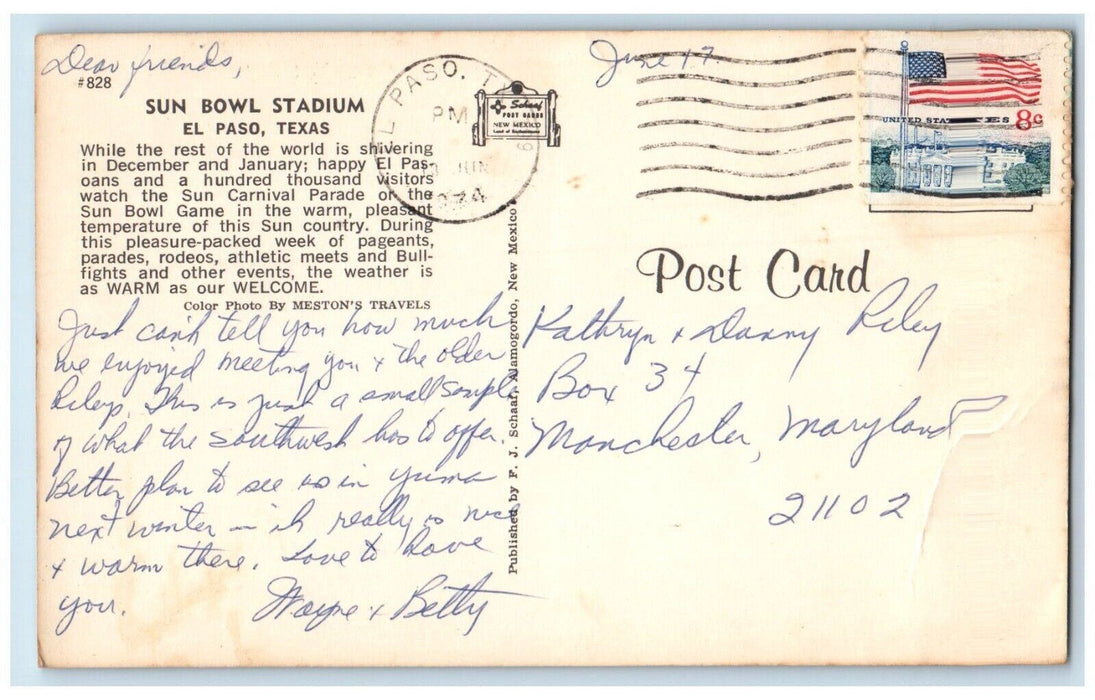 Dear friends,
June 17.
#828
SUN BOWL STADIUM
EL PASO, TEXAS
While the rest of the world is shivering
in December and January; happy El Pas-
oans and a hundred thousand visitors
watch the Sun Carnival Parade or the
Sun Bowl Game in the warm, pleasant
temperature of this Sun country. During
this pleasure-packed week of pageants,
parades, rodeos, athletic meets and Bull-
fights and other events, the weather is
as WARM as our WELCOME.
Color Photo By MESTON'S TRAVELS
Just can't tell you how much
we enjoyed meeting you & the older
Rileys. This is just a small sample
of what the Southwest has to offer.
Better plan to see us in Yuma
next winter — it really is nice
& warm there. Love to have
you.
Wayne & Betty
EL PASO, T
PM
JUN
1974
Schaaf
POST CARDS
NEW MEXICO
Land of Enchantment
Published by F. J. Schaaf, Alamogordo, New Mexico
UNITED STATES 8c
Post Card
Kathryn & Danny Riley
Box 34
Manchester, Maryland
21102